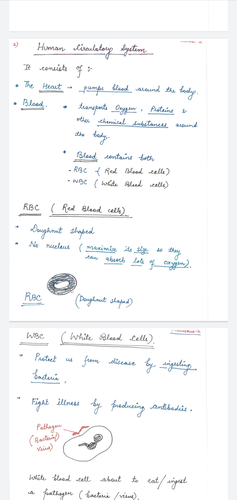 2)
Human Circulatory System
It consists of :-
• The Heart → pumps blood around the body.
• Blood. • transports Oxygen, Proteins &
other chemical substances around
the body.
• Blood contains both
- RBC ( Red Blood cells)
- WBC ( White Blood cells)
RBC ( Red Blood cells)
• Doughnut shaped
• No nucleus ( maximise its size so they
can absorb lots of oxygen).
RBC
(Doughnut shaped)
WBC ( White Blood Cells).
• Protect us from disease by ingesting
bacteria.
• Fight illness by producing antibodies.
Pathogen
(Bacteria/
virus)
White blood cell about to eat/ ingest
a pathogen ( bacteria / virus).